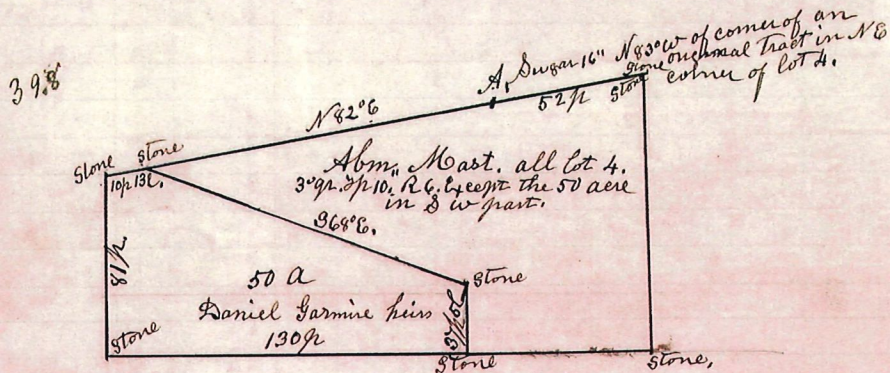 398
A, Sugar 16" N83°W of corner of an
original tract in NE
corner of lot 4.
Stone
Stone
N82°E
52p
Stone
Stone
10p 13l.
Abm. Mast. all lot 4.
3d qr. Tp 10, R 6. Except the 50 acre
in S W part.
S68°E.
81p
50 A
Stone
Daniel Garmire heirs
130p
37p 5l
Stone
Stone
Stone.